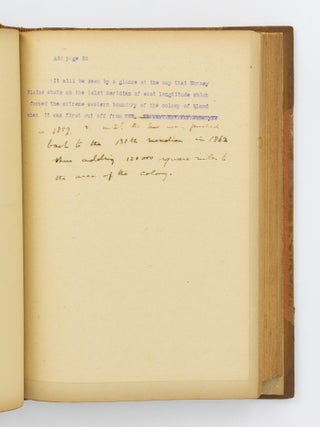 Add page 82
It will be seen by a glance at the map that
Plains abuts on the 141st meridian of east longitude which
formed the extreme western boundary of the colony of Qland
when it was first cut off from N.S.W.
in 1859, & until the line was pushed
back to the 138th meridian in 1862
thus adding 120000 square miles to
the area of the colony.